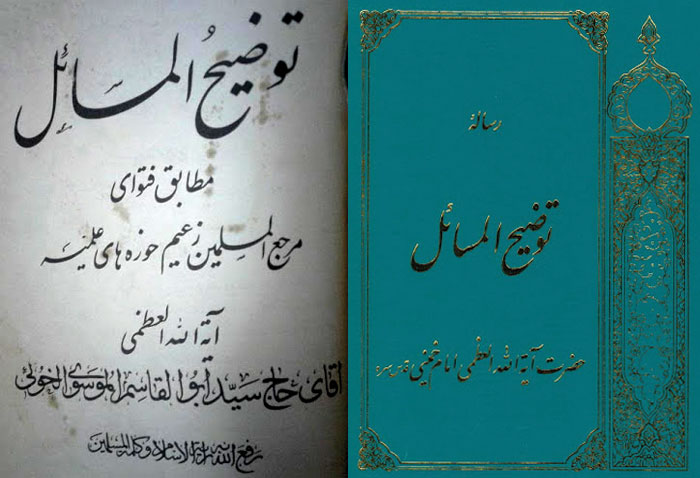 توضیحُ المسائل
مطابق فتوای
مرجع المسلمین زعیم حوزه های علمیه
آیة الله العظمی
آقای حاج سید ابوالقاسم الموسوی الخوئی
رفع الله به رایة الاسلام و کلمة المسلمین
رسالهٔ
توضیح المسائل
حضرت آیة الله العظمی امام خمینی قدس سره